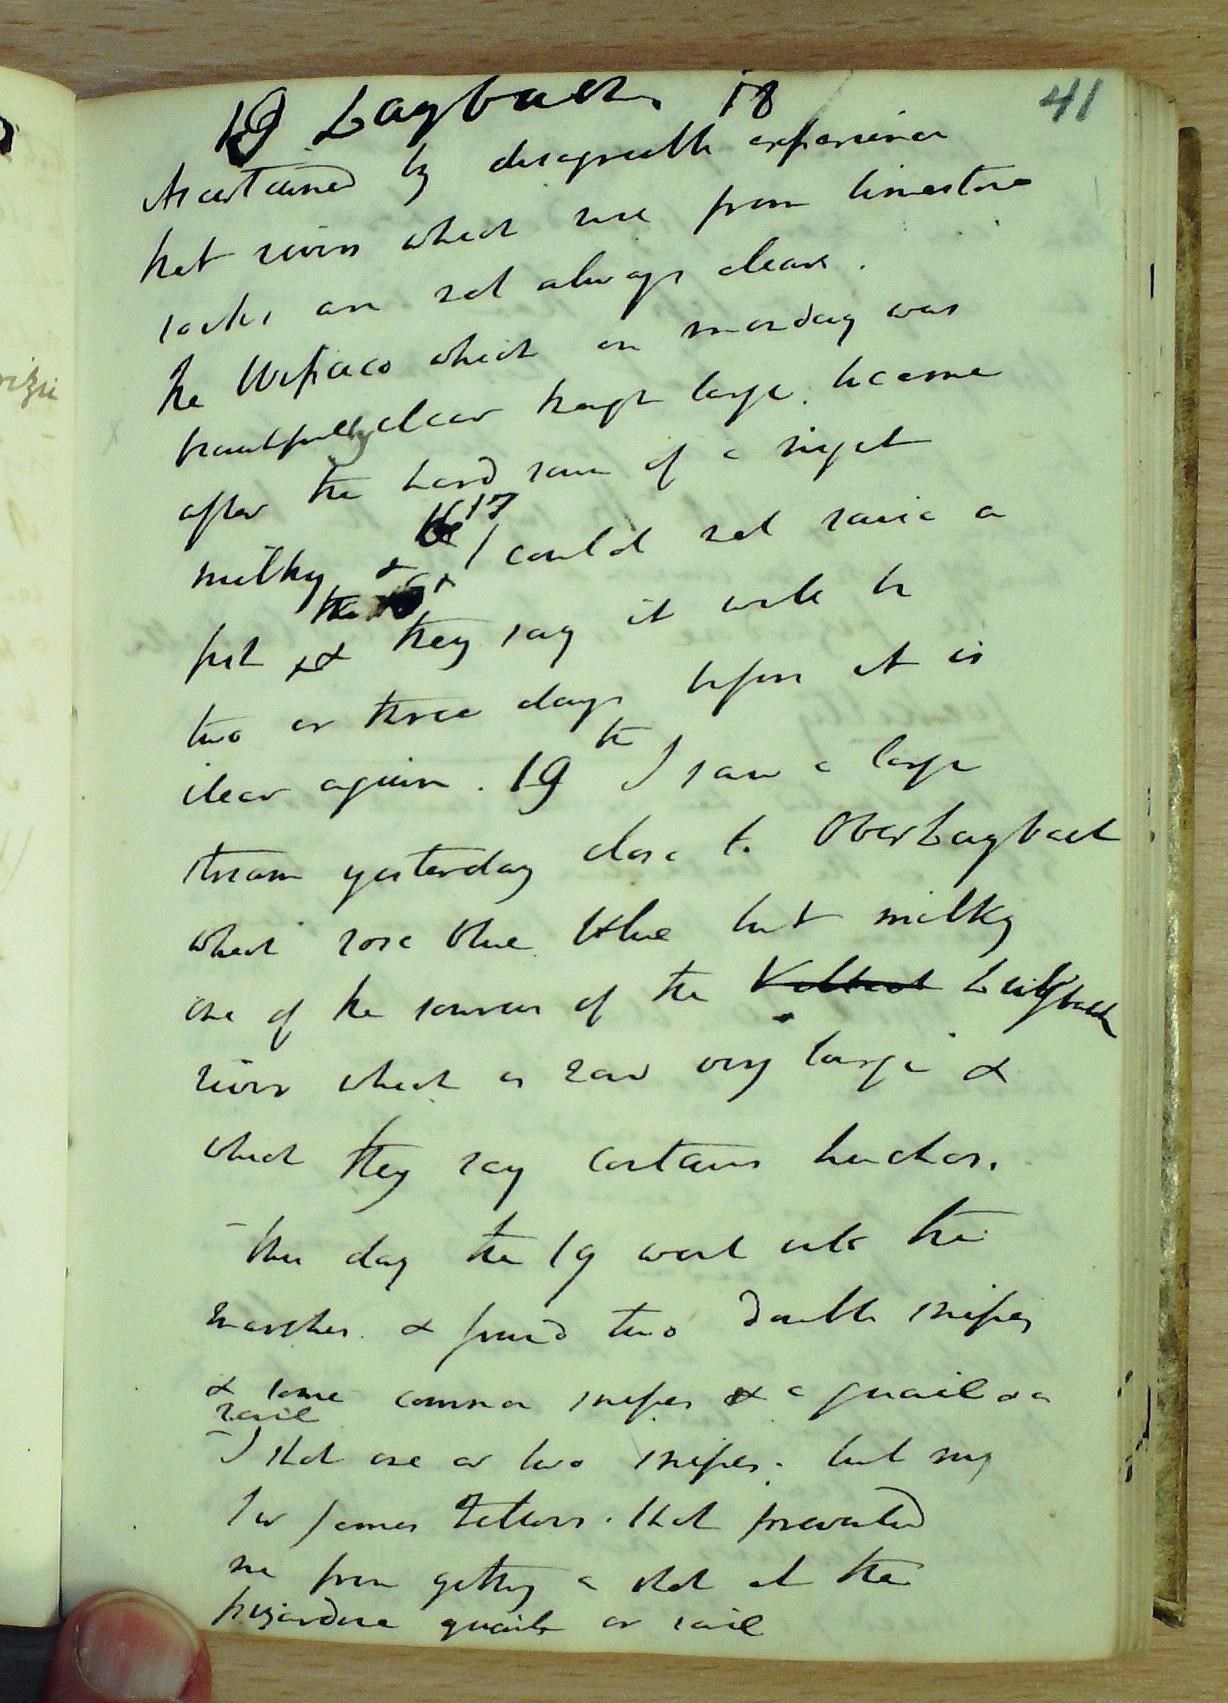 41
19 Laybach. 18
Ascertained by disagreeable experience
that rivers which rise from limestone
rocks are not always clear.
The Wipaco which on monday was
beautifully clear though large. became
after the hard rain of a night
milky & the 17 I could not raise a
fish & they say it will be
two or three days before it is
clear again. 19th I saw a large
stream yesterday close to OberLaybach
which rose blue blue but milky
one of the sources of the Laybach
river which is now very large &
which they say contains huchos.
This day the 19 went into the
marshes. & found two double snipes
& some common snipes & a quail & a
rail
I shot one or two snipes. but my
shot prevented
me from getting a shot at the
quails or rail